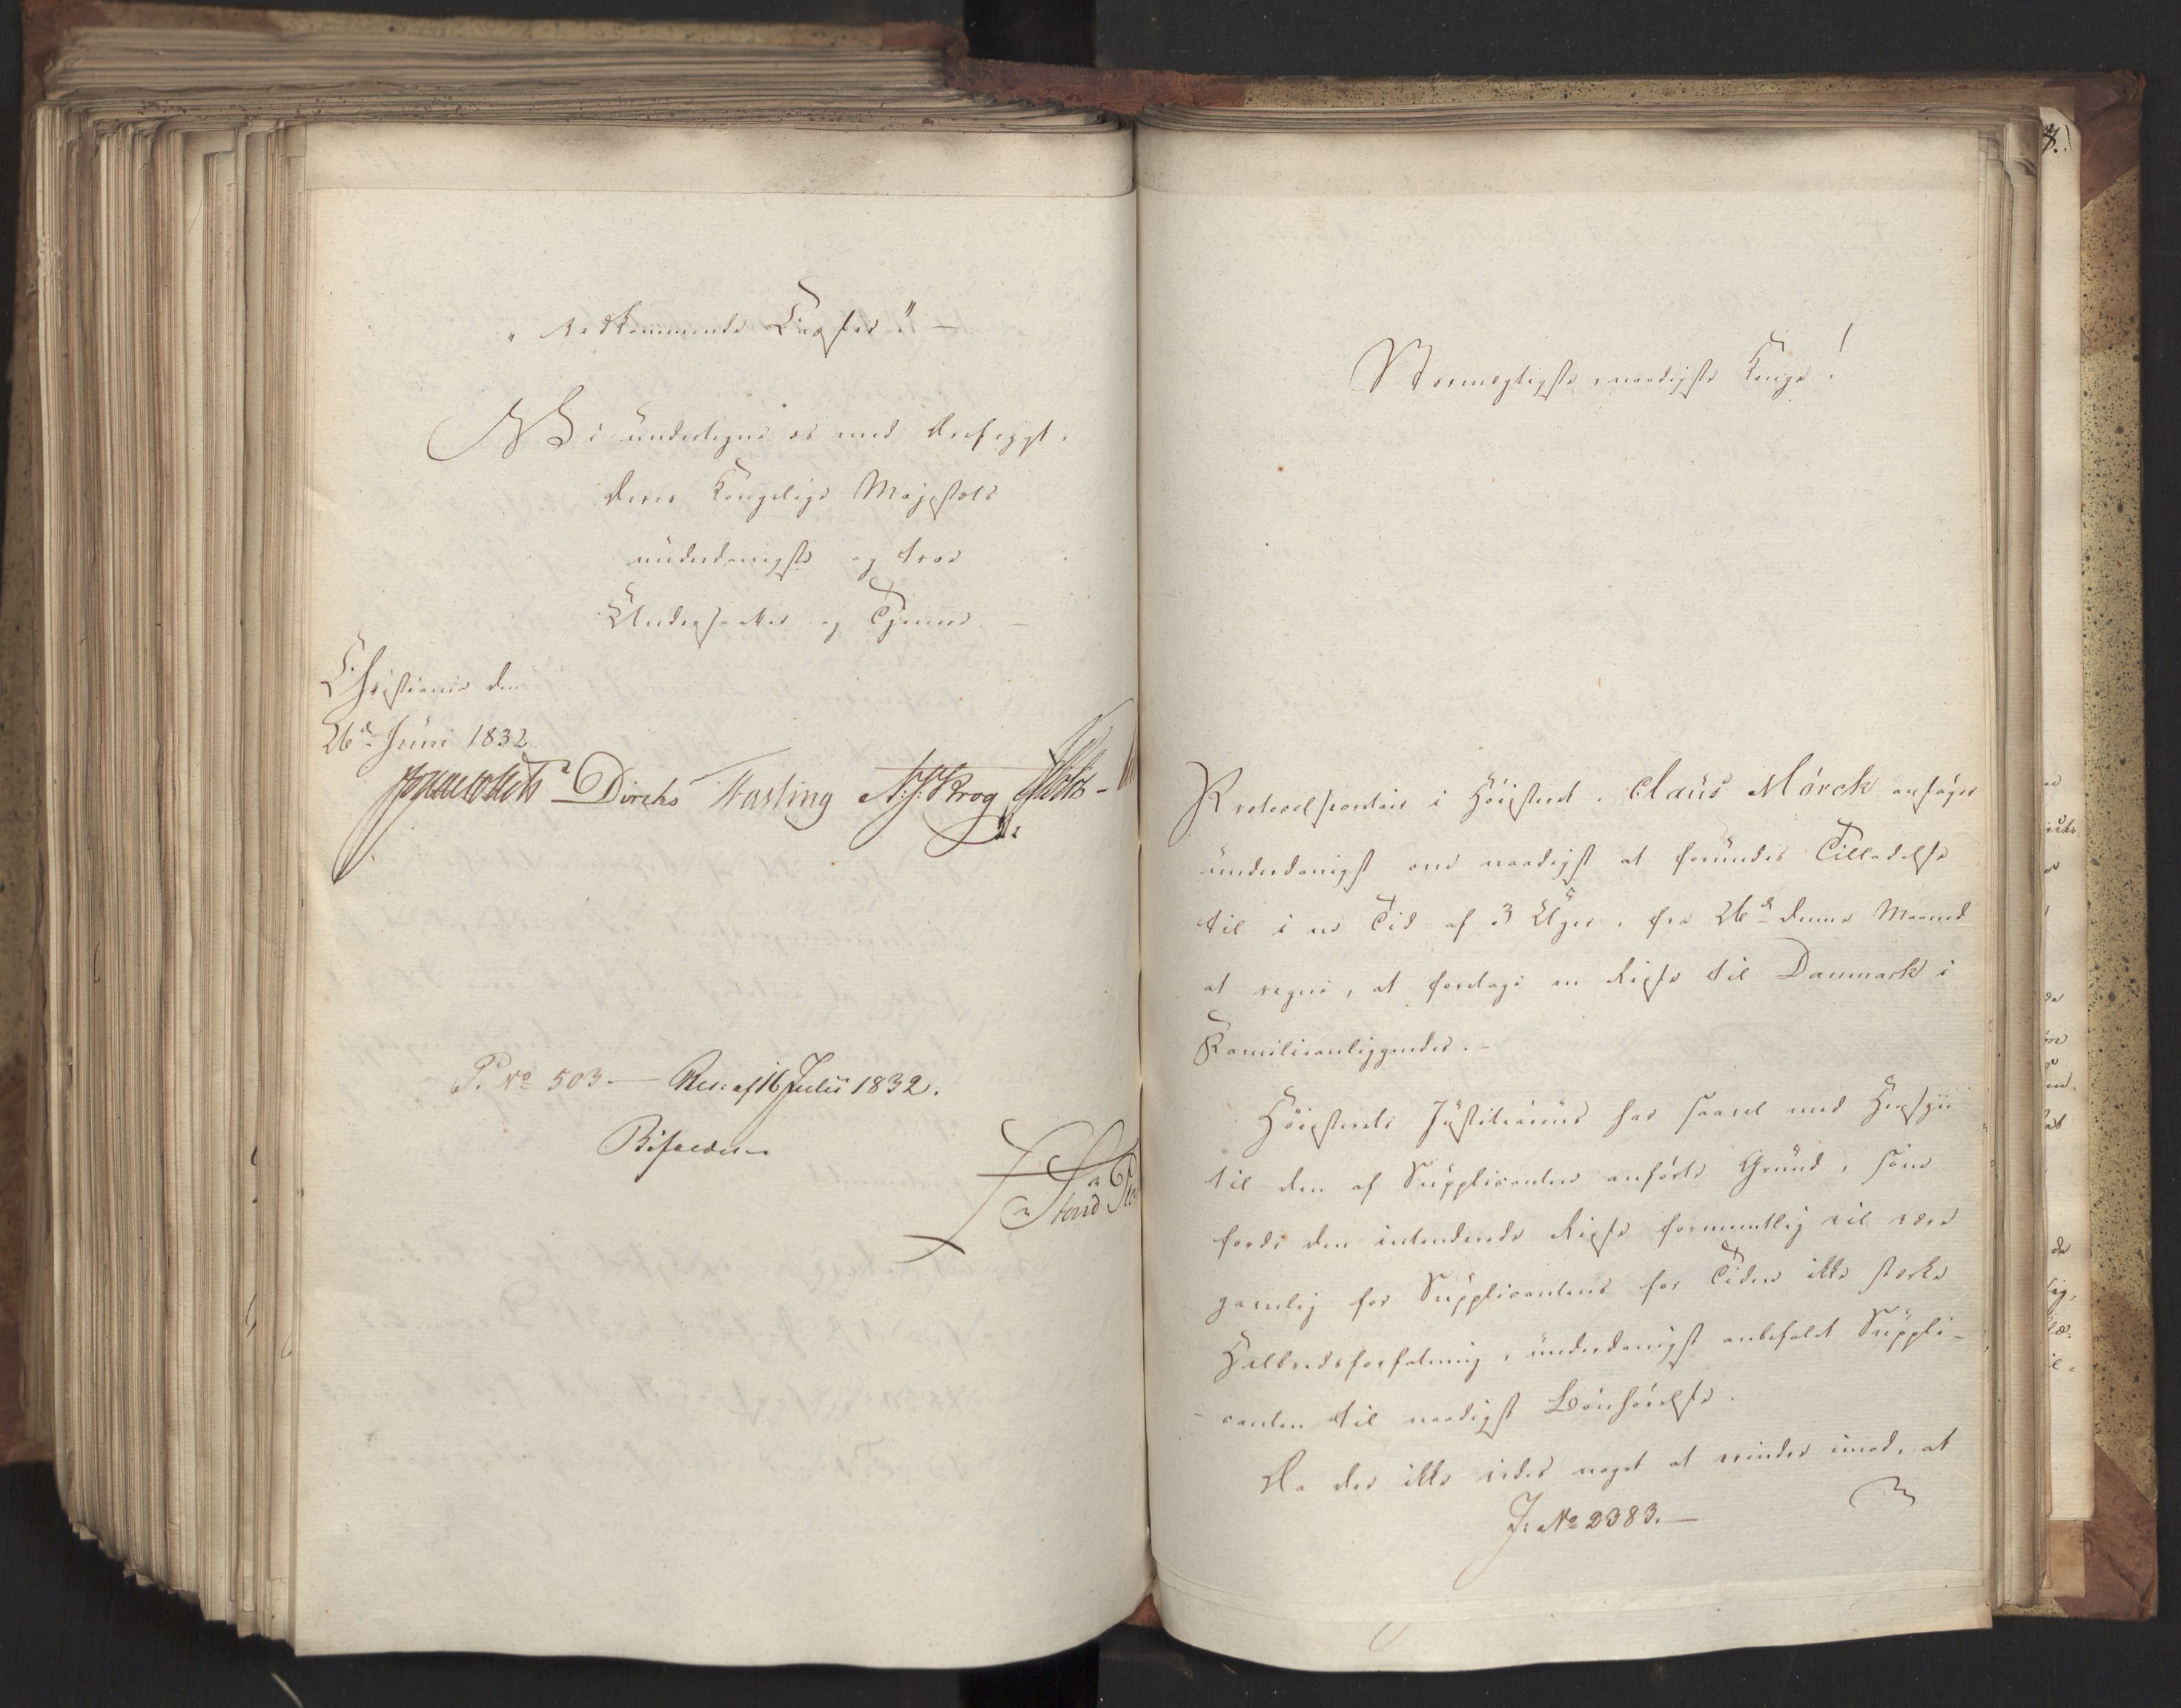 "vedkommende Kasser." —
Vi undertegne os med Ærefrygt,
Deres Kongelige Majestæts
underdanigste og troe
Undersaatter og Tjenere. —
Christiania den
26de Juni 1832.
Diriks Fasting N. J. Krog Holst
P. No 503. — Res: af 16 Julii 1832.
Bifaldes
Stormægtigste, naadigste Konge!
Protocolsecretair i Höiesteret, Claus Mörck ansöger
underdanigst om naadigst at forundes Tilladelse
til i en Tid af 3 Uger, fra 26de denne Maaned
at regne, at foretage en Reise til Danmark i
Familieanliggender. —
Höiesterets Justitiarius har saavel med Hensyn
til den af Supplicanten anförte Grund, som
fordi den intenderede Reise formeentlig vil være
gavnlig for Supplicantens for Tiden ikke stærke
Helbredsforfatning, underdanigst anbefalet Suppli-
-canten til naadigst Bönhörelse.
Da der ikke vides noget at erindre imod, at
J. No 2383. —